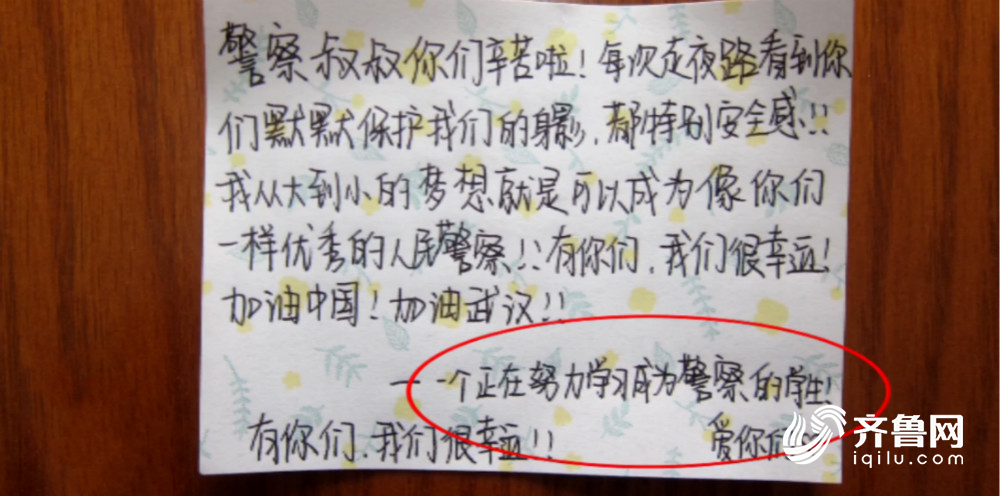 警察叔叔你们辛苦啦！每次走夜路看到你
们默默保护我们的身影，都特别安全感！！
我从大到小的梦想就是可以成为像你们
一样优秀的人民警察！！有你们，我们很幸运！
加油中国！加油武汉！！
——个正在努力学习成为警察的学生！
有你们，我们很幸运！！ 爱你们
齐鲁网
iqilu.com